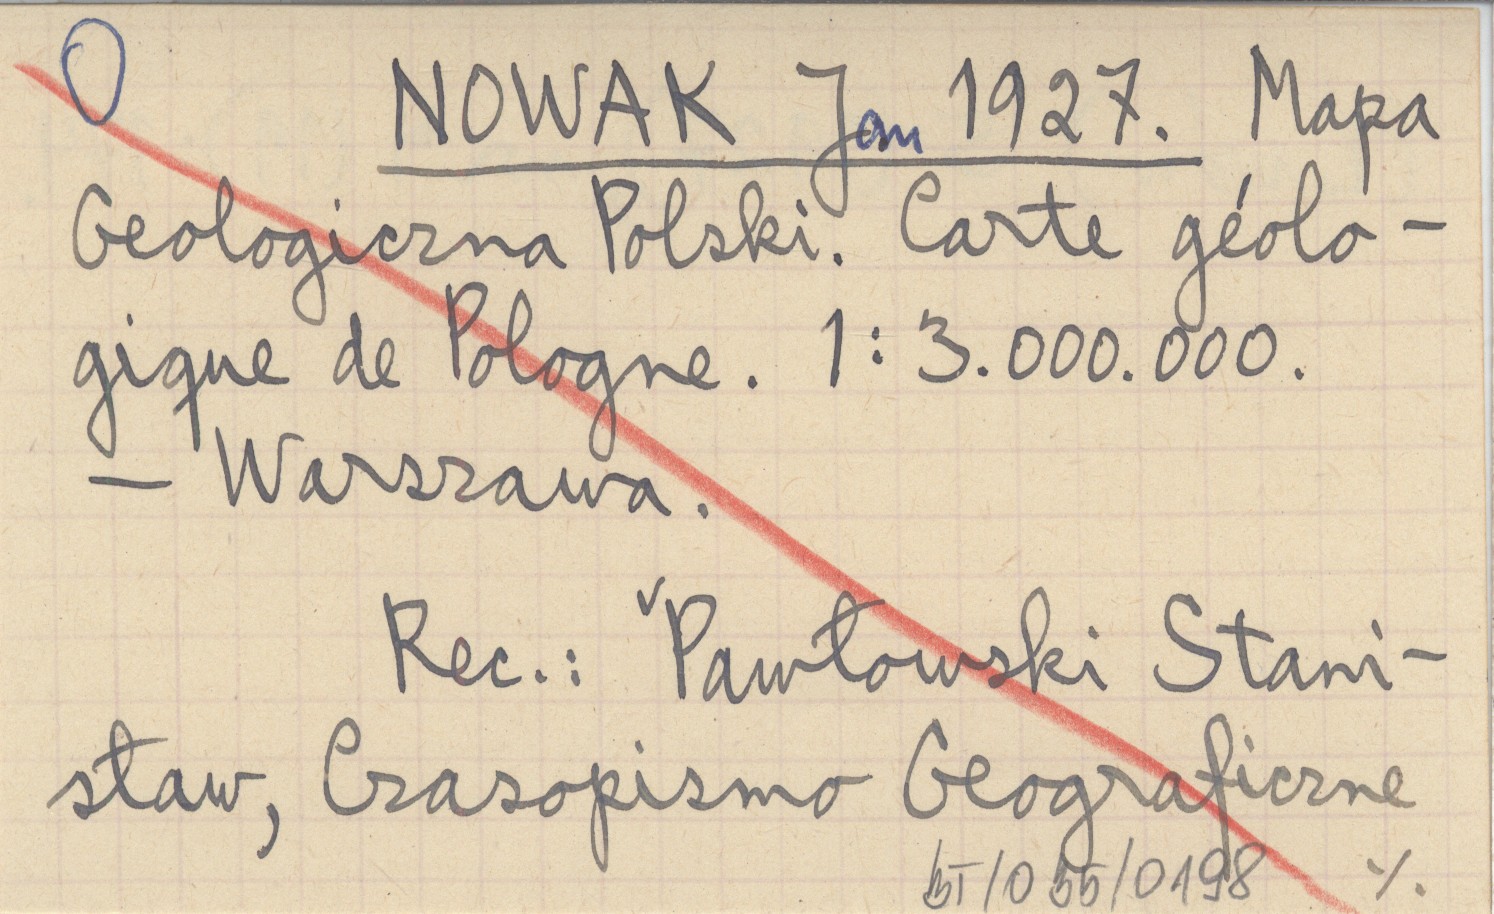 NOWAK Jan 1927. Mapa
Geologiczna Polski. Carte géolo-
gique de Pologne. 1:3.000.000.
— Warszawa.
Rec.: Pawłowski Stani-
sław, Czasopismo Geograficzne
/055/0198 ./.